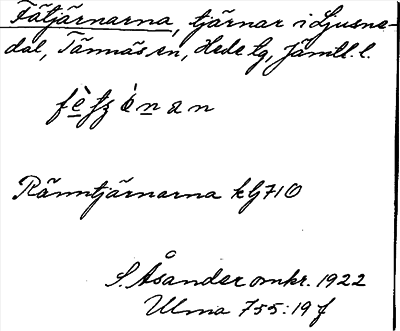 Fätjärnarna, tjärnar i Ljusne-
dal, Tännäs sn, Hede tg, Jämtl. l.
Ränntjärnarna kbl 710
S. Åsander omkr. 1922
Ulma 755:19 f